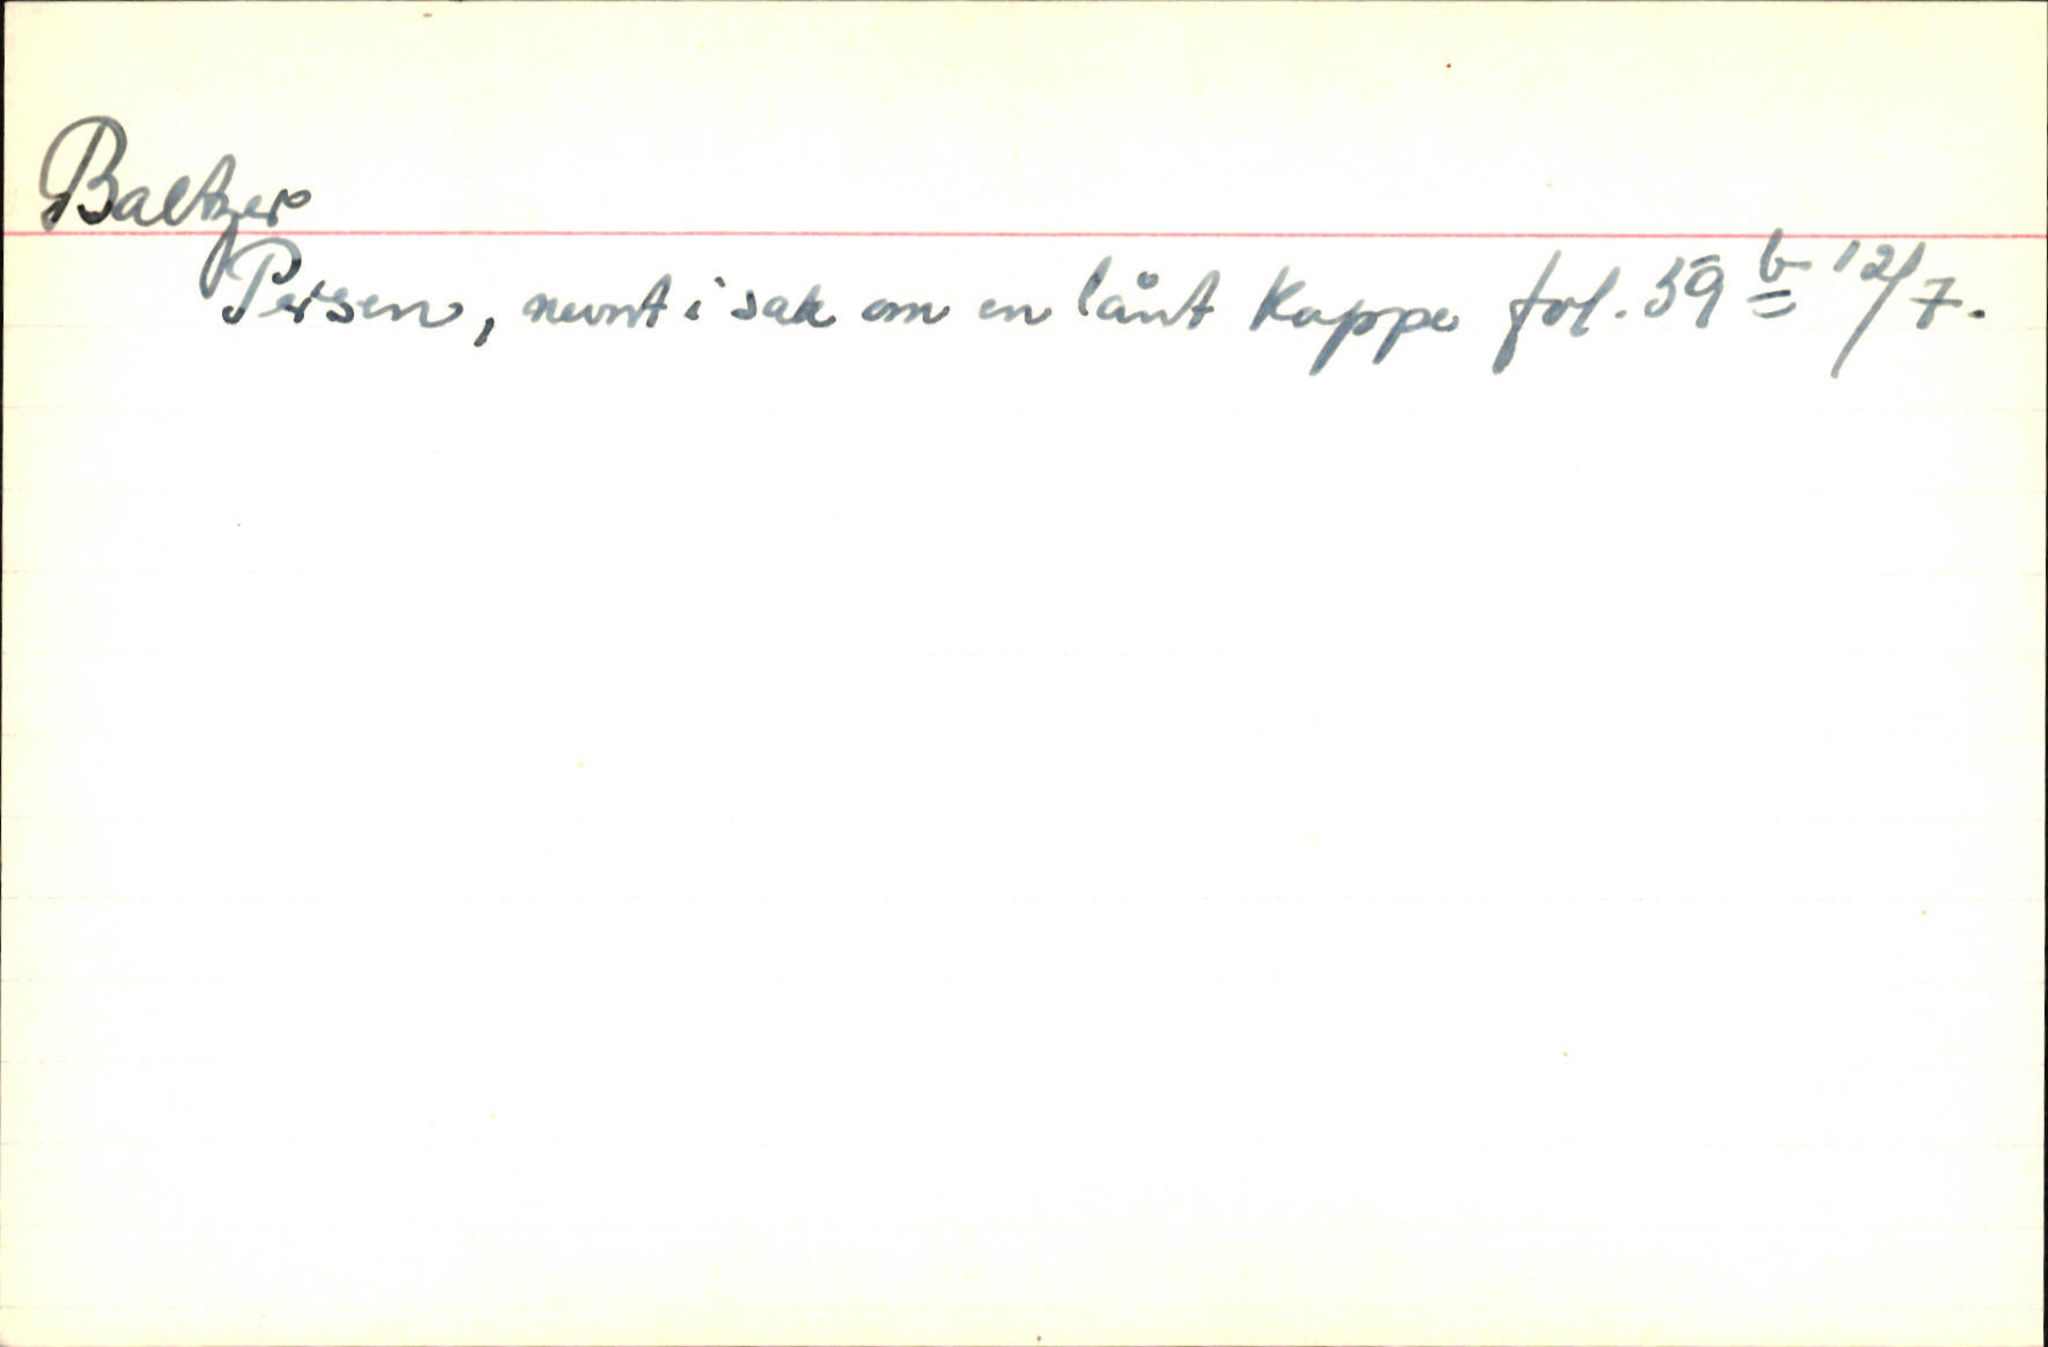 Baltzer
Persen, nevnt i sak om en lånt Kappe fol. 59 b 12/7.